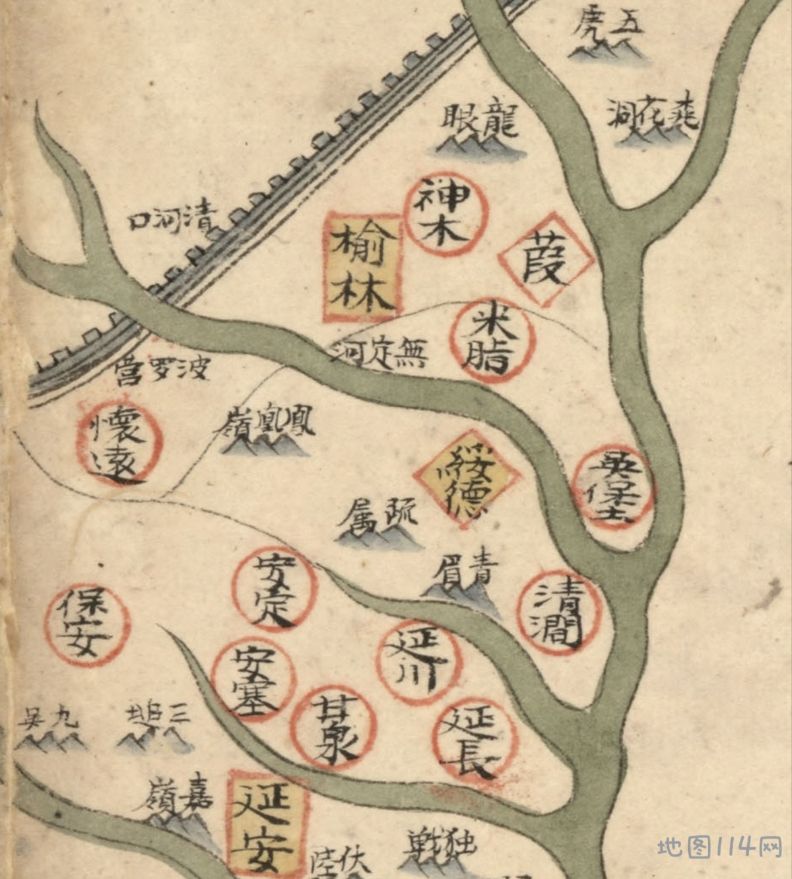 五虎
龍眼
爽花洞
清河口
神木
榆林
葭
米脂
無定河
波罗营
懷遠
鳳凰嶺
綏德
吳堡
疏属
青眉
安定
清澗
保安
延川
安塞
甘泉
延長
九吳
三堆
嘉嶺
延安
独戦
伏陸
地图114网